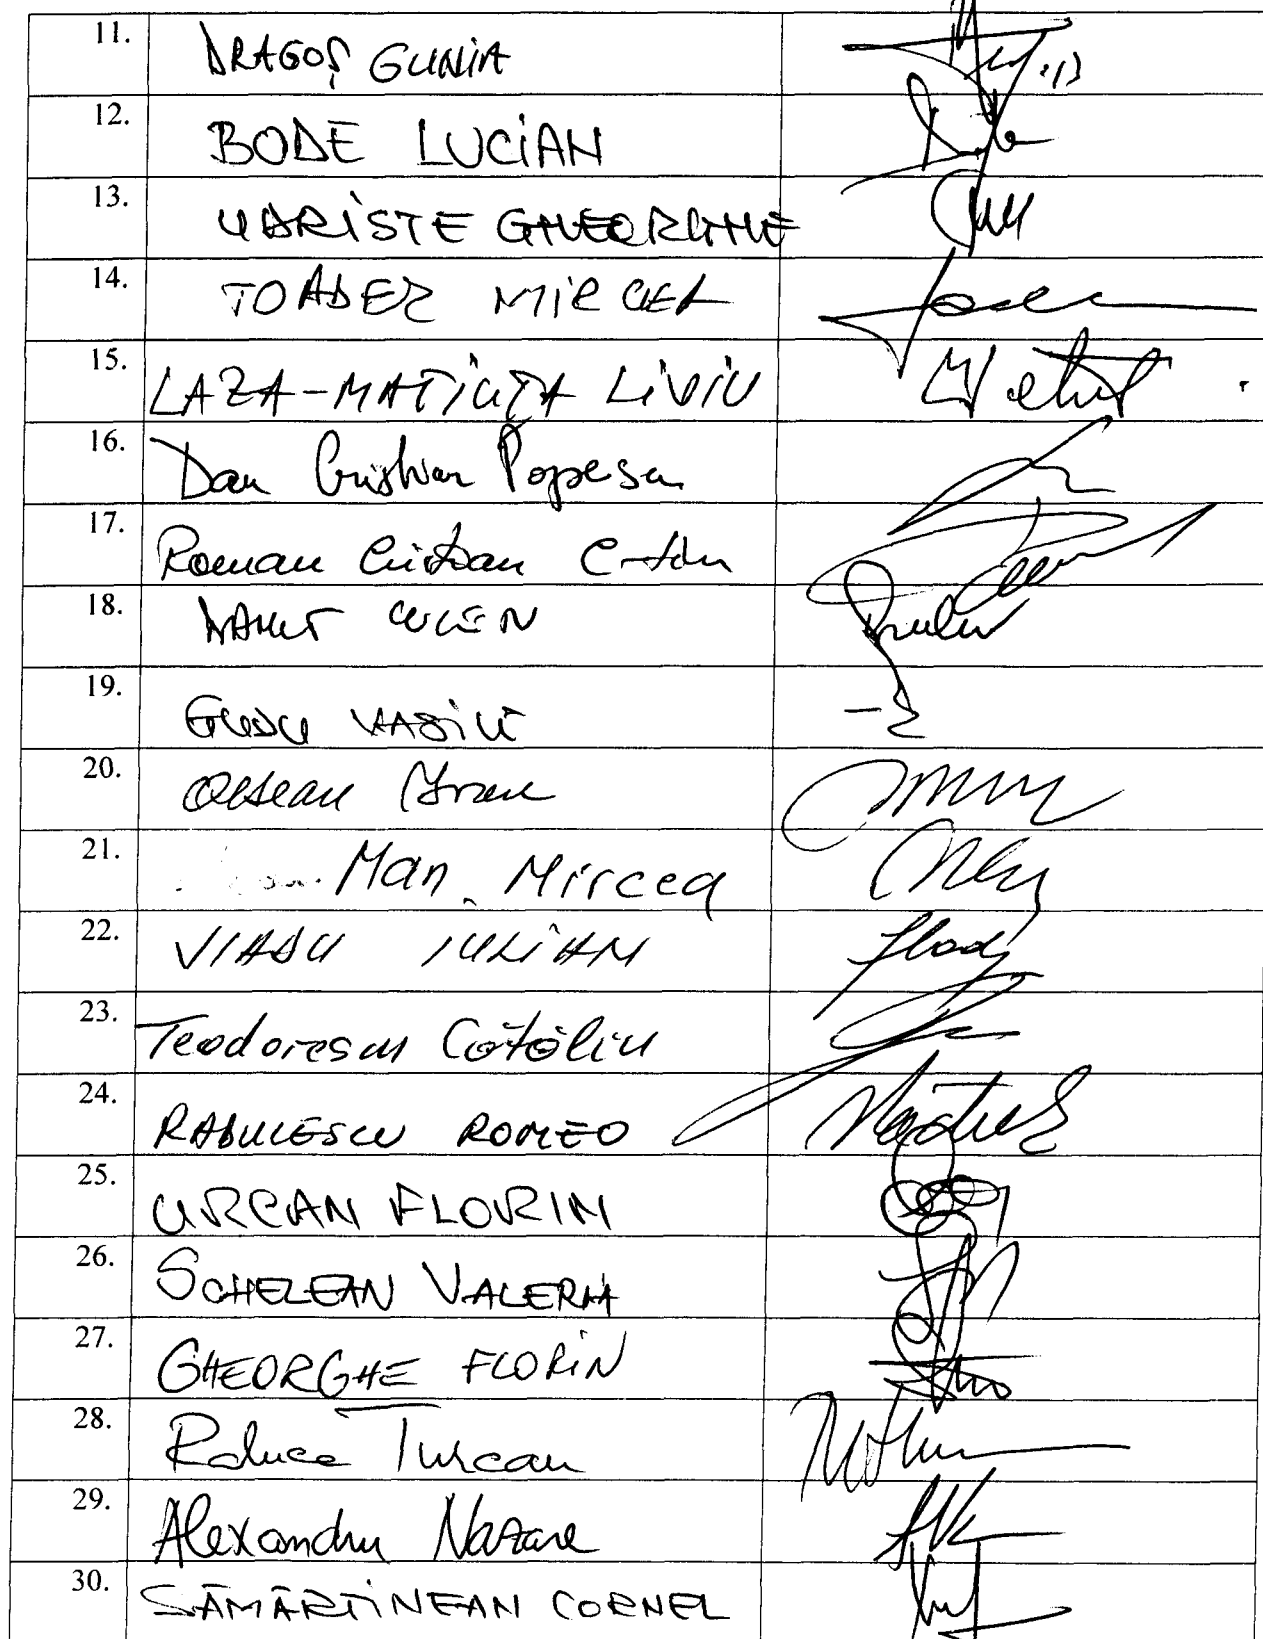 11. DRAGOȘ GUNIA
12. BODE LUCIAN
13. UDRISTE GHEORGHE
14. TOADER MIRCEA
15. LAZA-MATIUȚA LIVIU
16. Dan Cristian Popescu
17. Roman Cristian C-tin
18. NAHUT LUCIAN
19. GUDU VASILE
20. Oltean
21. Man Mircea
22. VLADU IULIAN
23. Teodorescu Cătălin
24. RADULESCU ROMEO
25. URCAN FLORIN
26. SCHELEAN VALERIA
27. GHEORGHE FLORIN
28. Raluca Turcan
29. Alexandru Nazare
30. SĂMĂRTINEAN CORNEL